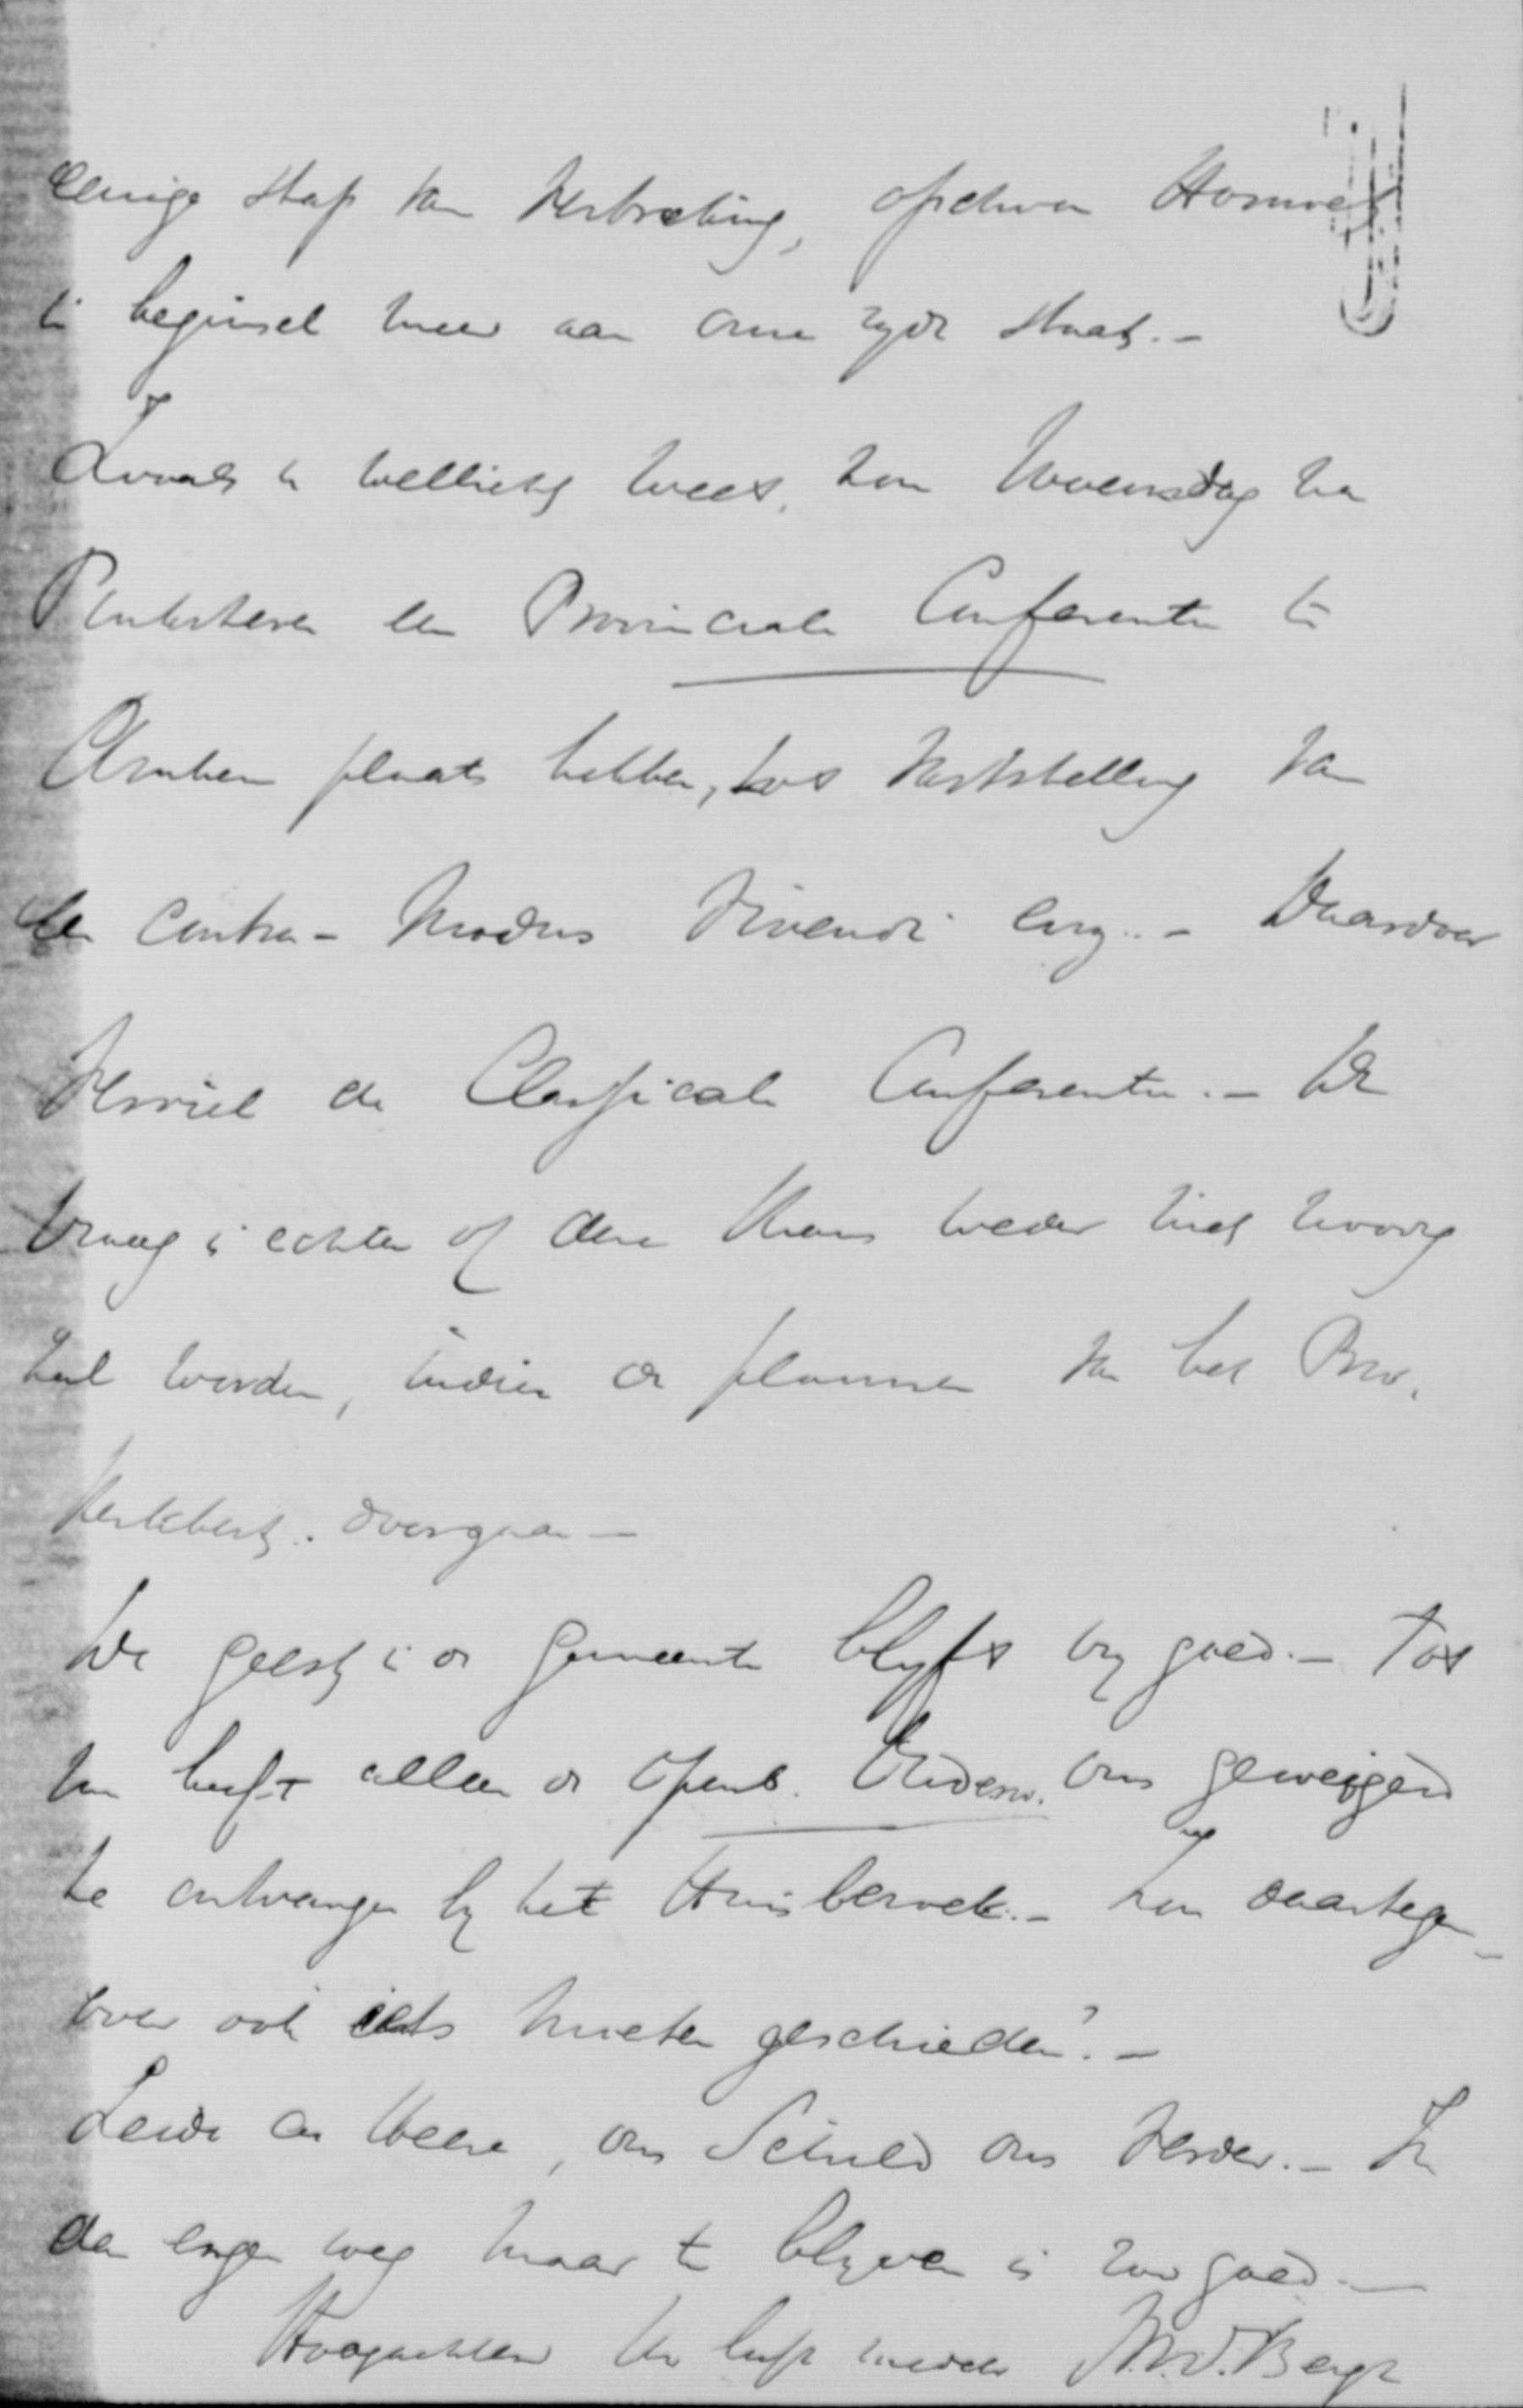 eenige stap van verbreking, ofschoon Hommel
in beginsel meer aan onze zyde staat. -
Zooals u wellicht weet, zou Woensdag na
Pinksteren een Provinciale Conferentie te
Arnhem plaats hebben, tot vaststelling van
een contra-modus vivendi enz. - Daardoor
verviel de Classicale Conferentie. - De
vraag is echter of deze thans weder niet noodig
zal worden, indien de plannen van het Prov.
Kerkbest. doorgaan -
De geest in de gemeente blyft by goed. - Tot
nu heeft alleen de openb. Onderw. ons geweigerd
te ontvangen by het Huisbezoek. - Zou daartegen-
over ook iets moeten geschieden? -
Leide de Heere, ons Schild ons verder. - In
den engen weg maar te blyven is zoo goed. -
Hoogachtend Uw liefh. meded. v.d. Bergh